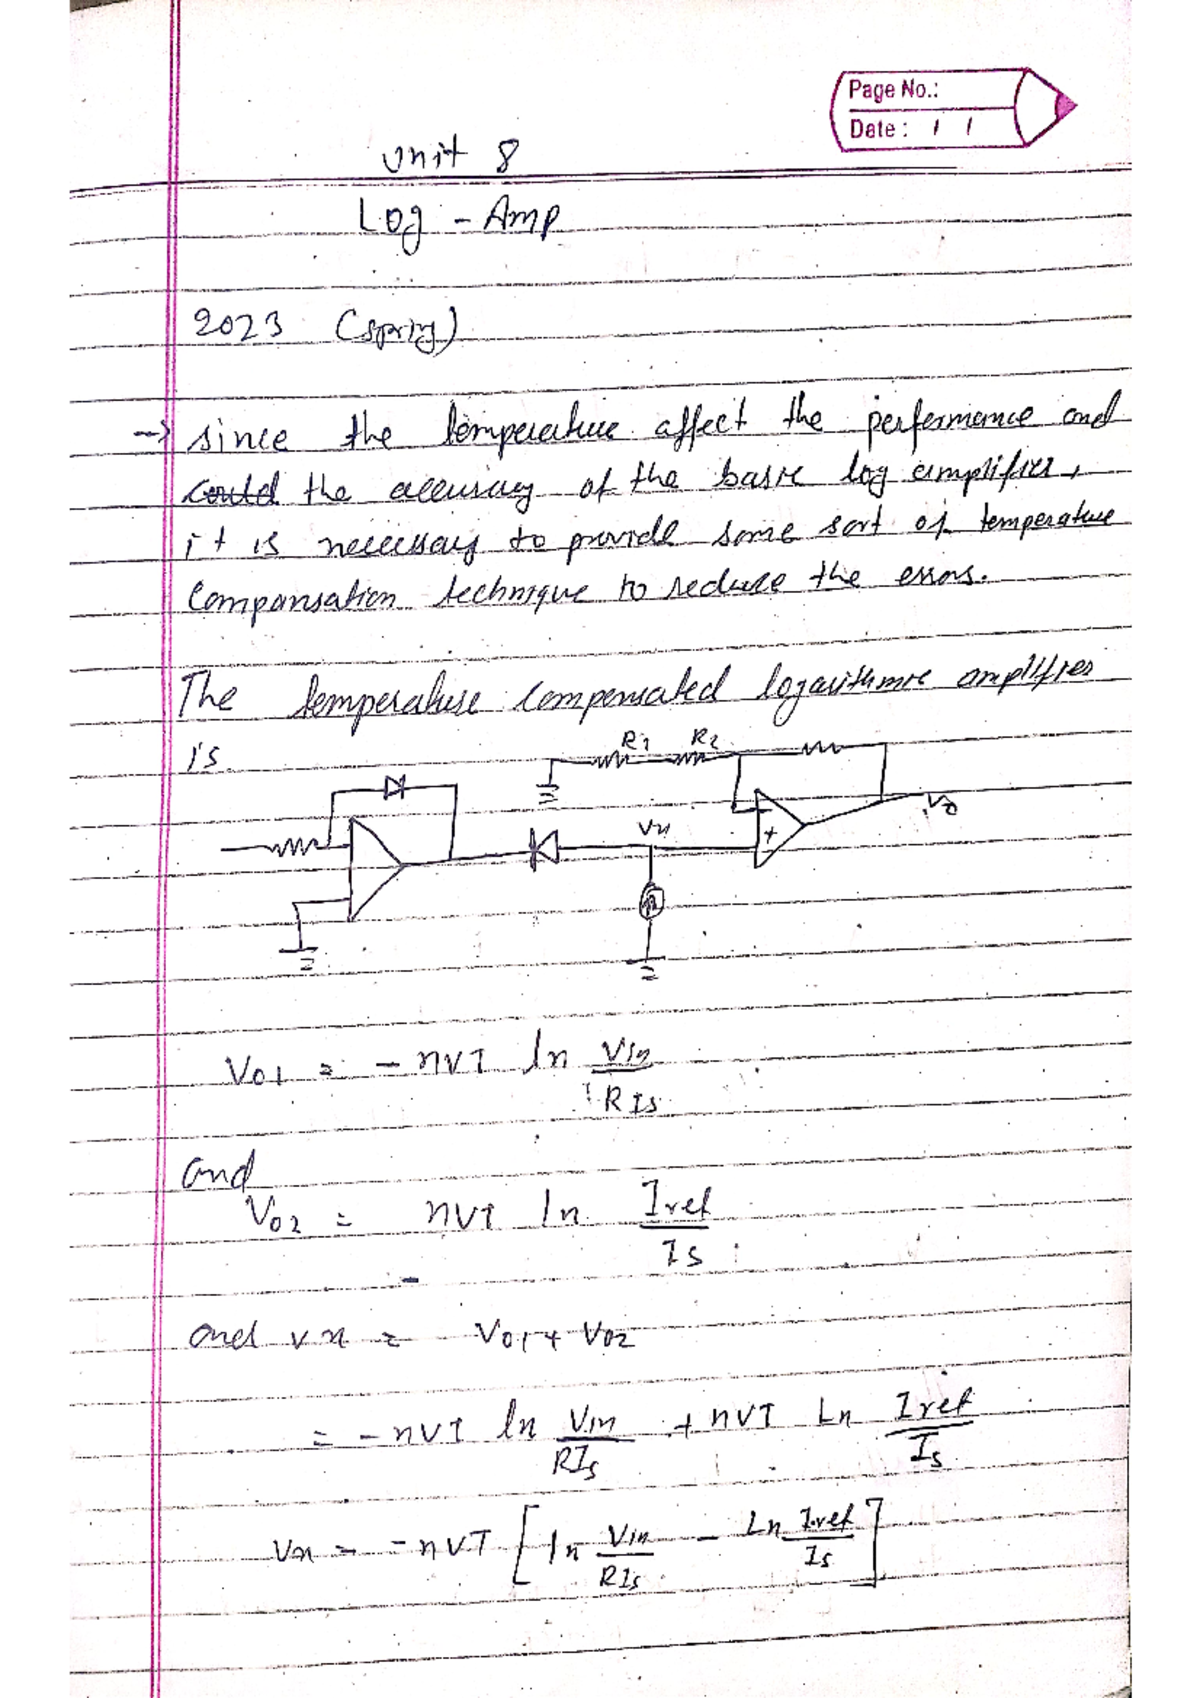 Page No.:
Date : / /
Unit 8
Log - Amp
2023 (spring)
→ since the temperature affect the performance and
could the accuracy of the basic log amplifier,
it is necessary to provide some sort of temperature
Compansation technique to reduce the errors.
The temperature compensated logarithmic amplifier
is
R1 R2
Vo
Vx
+
R
Vo1 = - nVT ln Vin
RIs
and
Vo2 = nVT ln Iref
Is
and vx = Vo1 + Vo2
= - nVT ln Vin + nVT Ln Iref
RIs Is
Vx = - nVT [ ln Vin - Ln Iref ]
RIs Is